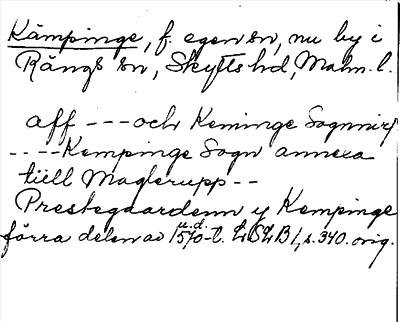 Kämpinge, f. egen sn, nu by i
Rängs sn, Skytts hd, Malm. l.
aff --- och Keminge Sognnir
---- Kempinge Sogn annexa
tiell Maglerupp --
Prestegaardenn y Kempinge
förra delen av 1570-t. u.d. LSLB 1, s. 340. orig.